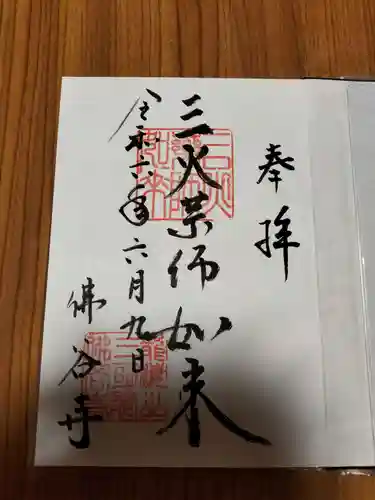 奉拝
三火薬師如来
令和六年六月九日
佛谷寺